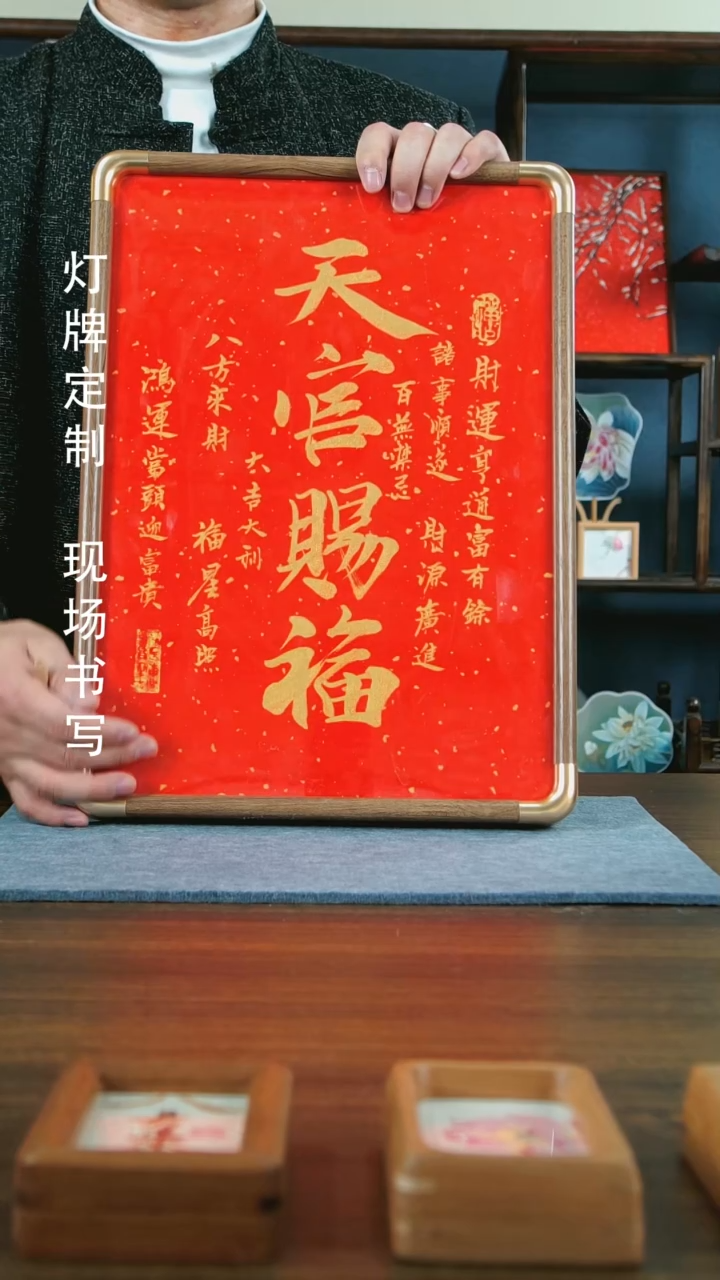 灯牌定制 现场书写
天官賜福
財運亨通富有餘
諸事順遂
財源廣進
百無禁忌
大吉大利
八方來財
福星高照
鴻運當頭迎富貴